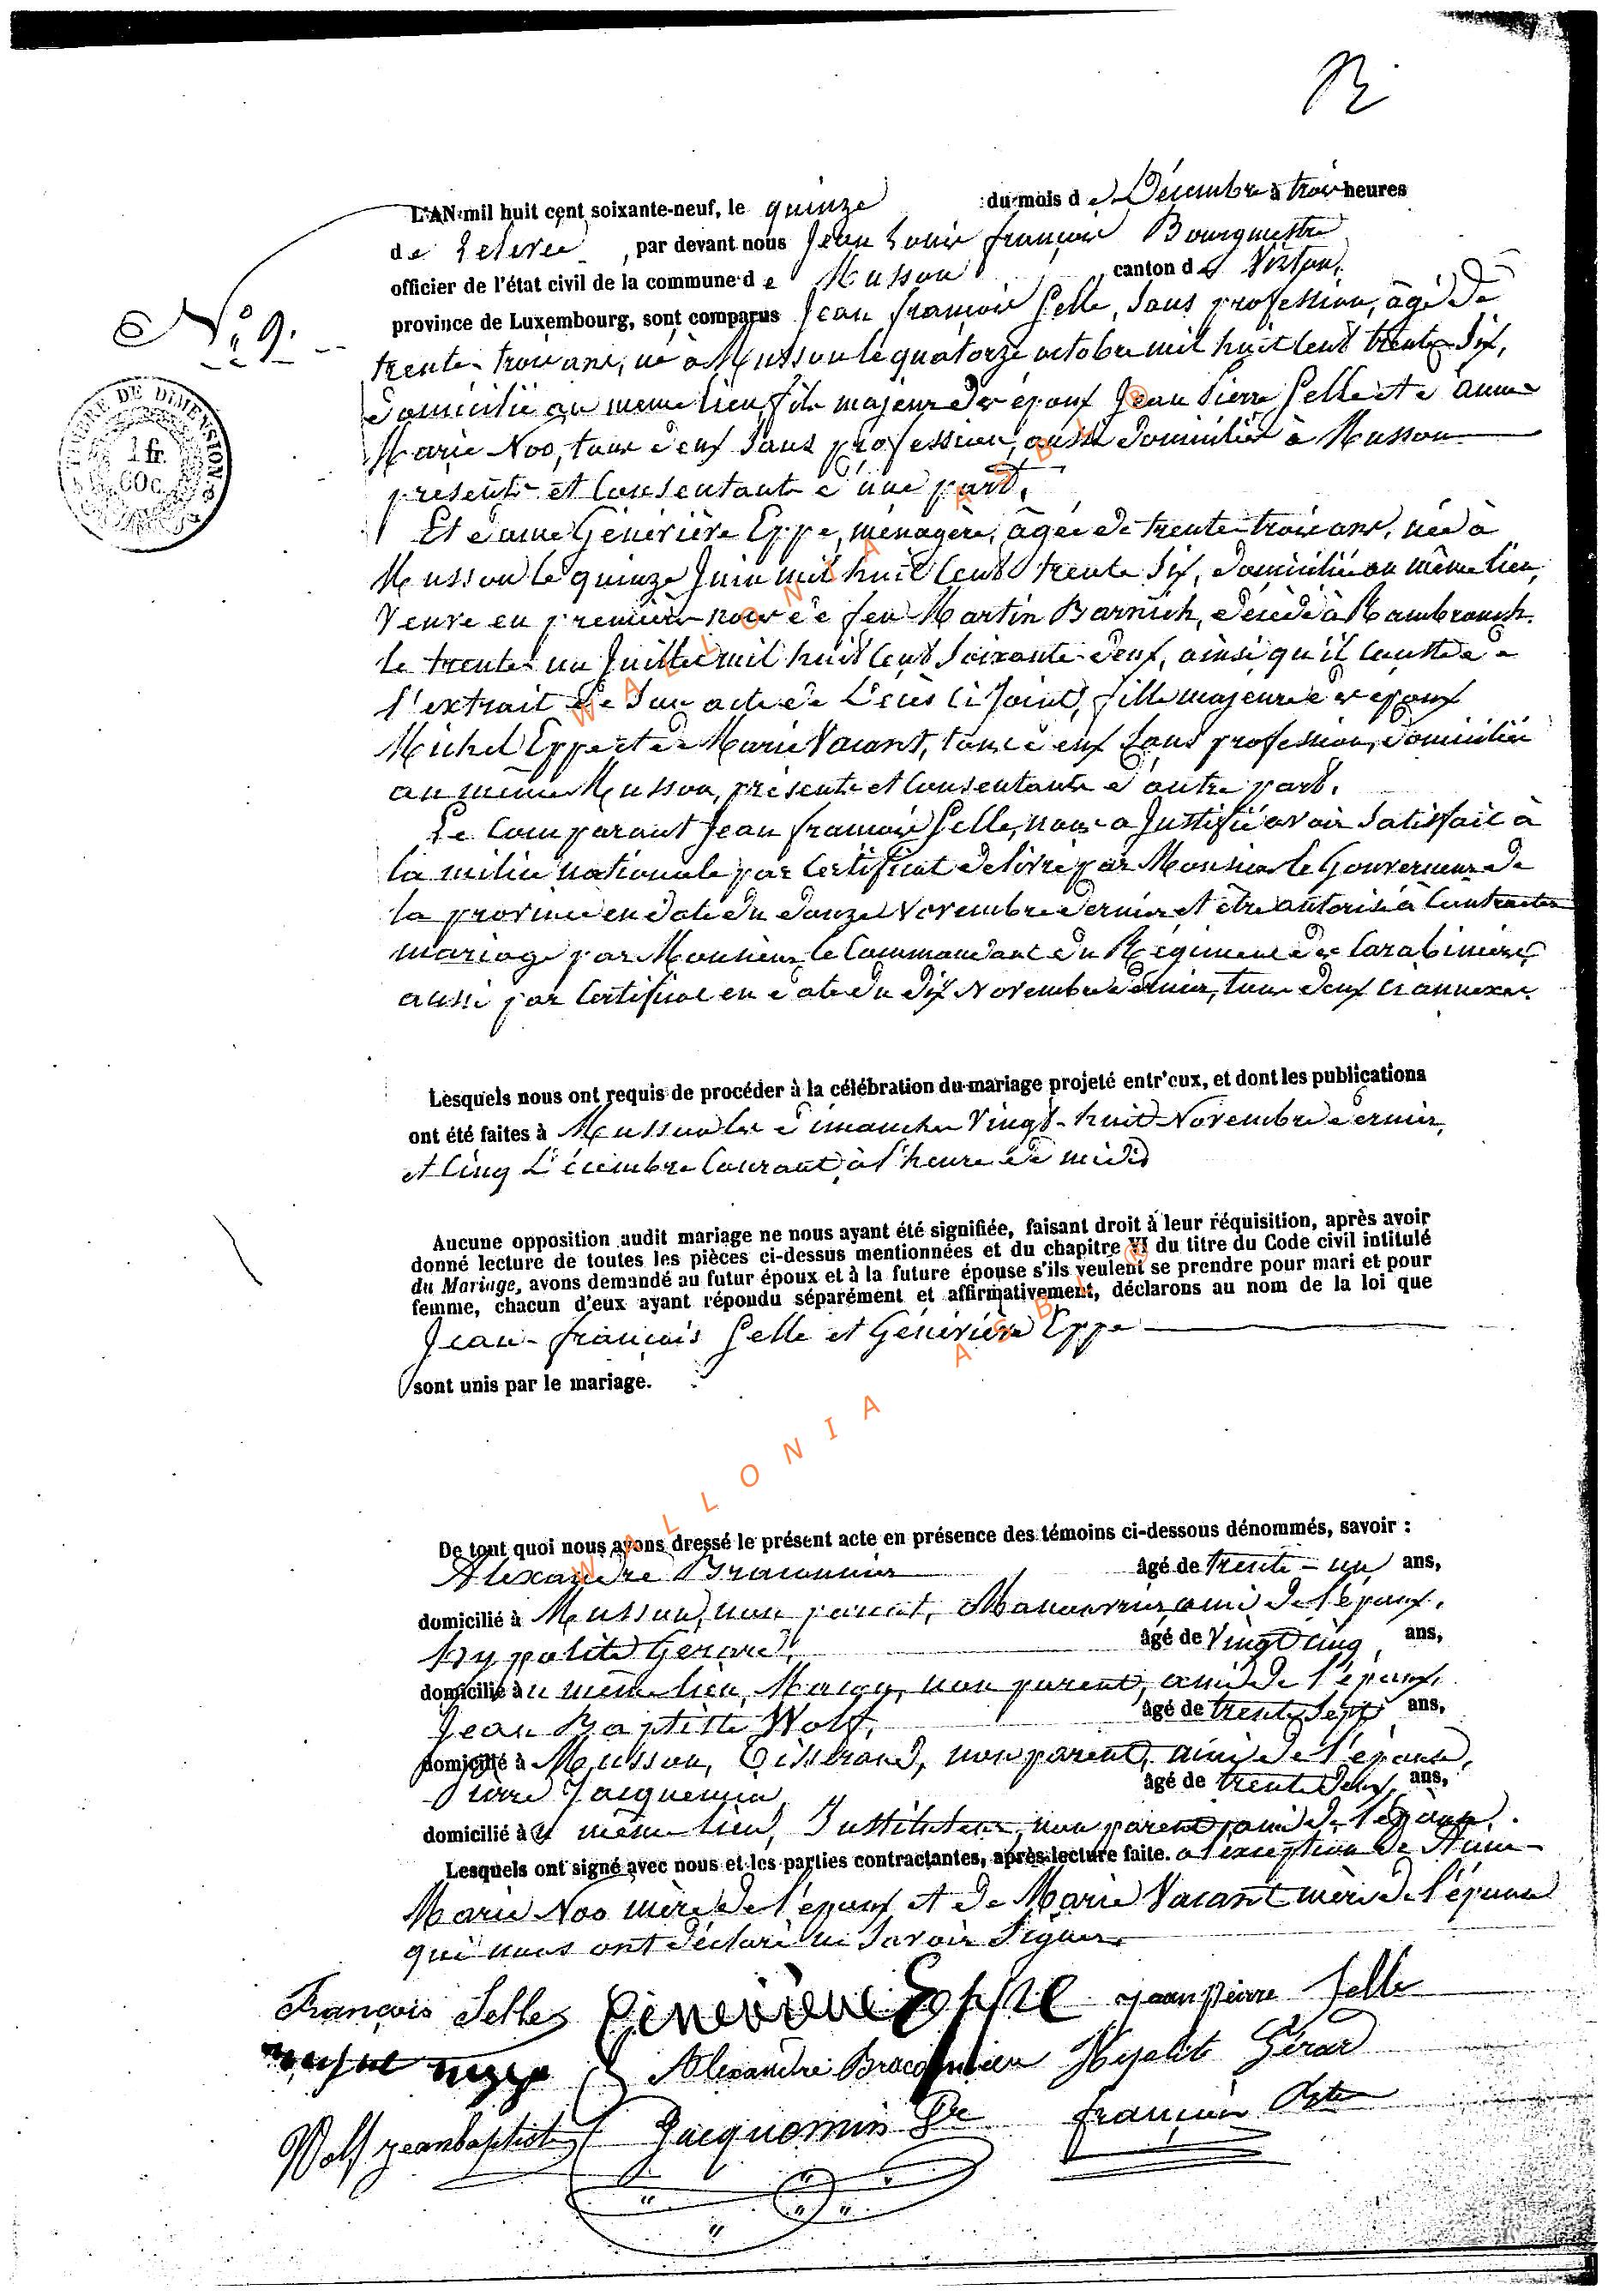 L'AN mil huit cent soixante-neuf, le quinze du mois de Décembre à trois heures
de relevée, par devant nous Jean Louis françois Bourgmestre
officier de l'état civil de la commune de Musson canton de Virton,
N° 9.
province de Luxembourg, sont comparus Jean françois Selle, Sans profession, âgé de
trente-trois ans, né à Musson le quatorze octobre mil huit cent trente Six,
TIMBRE DE DIMENSION
1 fr.
60 c.
domicilié au même lieu, fils majeur des époux Jean Pierre Selle et de Anne
Marie Noo, tous deux Sans profession, aussi domiciliés à Musson
présents et Consentants d'une part,
Et dame Génévière Eppe, ménagère, âgée de trente-trois ans, née à
Musson le quinze Juin mil huit Cent trente Six, domiciliée au même lieu,
Veuve en premières noces de feu Martin Barnich, décédé à Rambrouch
le trente un Juillet mil huit Cent Soixante-deux, ainsi qu'il Conste de
l'extrait de Son acte de Décès Ci Joint, fille majeure des époux
Michel Eppe et de Marie Vacant, tous deux Sans profession, domiciliés
au même Musson, présents et Consentants d'autre part.
Le Comparant Jean françois Selle, nous a Justifié avoir Satisfait à
la milice nationale par Certificat délivré par Monsieur le Gouverneur de
la province en date du douze Novembre dernier et être autorisé à Contracter
mariage par Monsieur le Commandant du Régiment des Carabiniers
aussi par Certificat en date du dix Novembre dernier, tous deux ci annexés.
Lesquels nous ont requis de procéder à la célébration du mariage projeté entr'eux, et dont les publications
ont été faites à Musson les dimanches Vingt-huit Novembre dernier,
et Cinq Décembre Courant, à l'heure de midi
Aucune opposition audit mariage ne nous ayant été signifiée, faisant droit à leur réquisition, après avoir
donné lecture de toutes les pièces ci-dessus mentionnées et du chapitre VI du titre du Code civil intitulé
du Mariage, avons demandé au futur époux et à la future épouse s'ils veulent se prendre pour mari et pour
femme, chacun d'eux ayant répondu séparément et affirmativement, déclarons au nom de la loi que
Jean-françois Selle et Génévière Eppe
sont unis par le mariage.
De tout quoi nous avons dressé le présent acte en présence des témoins ci-dessous dénommés, savoir :
Alexandre Braconnier âgé de trente-un ans,
domicilié à Musson, non parent, Manouvrier, ami de l'époux,
Hypolite Gerard, âgé de Vingt Cinq ans,
domicilié au même lieu, Maçon, non parent, ami de l'époux,
Jean Baptiste Wolf, âgé de trente Sept ans,
domicilié à Musson, Tisserand, non parent, ami de l'épouse,
Pierre Jacquemin, âgé de trente deux ans,
domicilié au même lieu, Instituteur, non parent, ami de l'épouse.
Lesquels ont signé avec nous et les parties contractantes, après lecture faite. à l'exception de Anne-
Marie Noo mère de l'époux et de Marie Vacant mère de l'épouse
qui nous ont déclaré ne Savoir Signer.
François Selle Génevieve Eppe jean pierre Selle
Alexandre Braconnier Hypolit Gérard
Wolf jean baptiste Jacquemin Pre françois
WALLONIA ASBL ®
WALLONIA ASBL ®